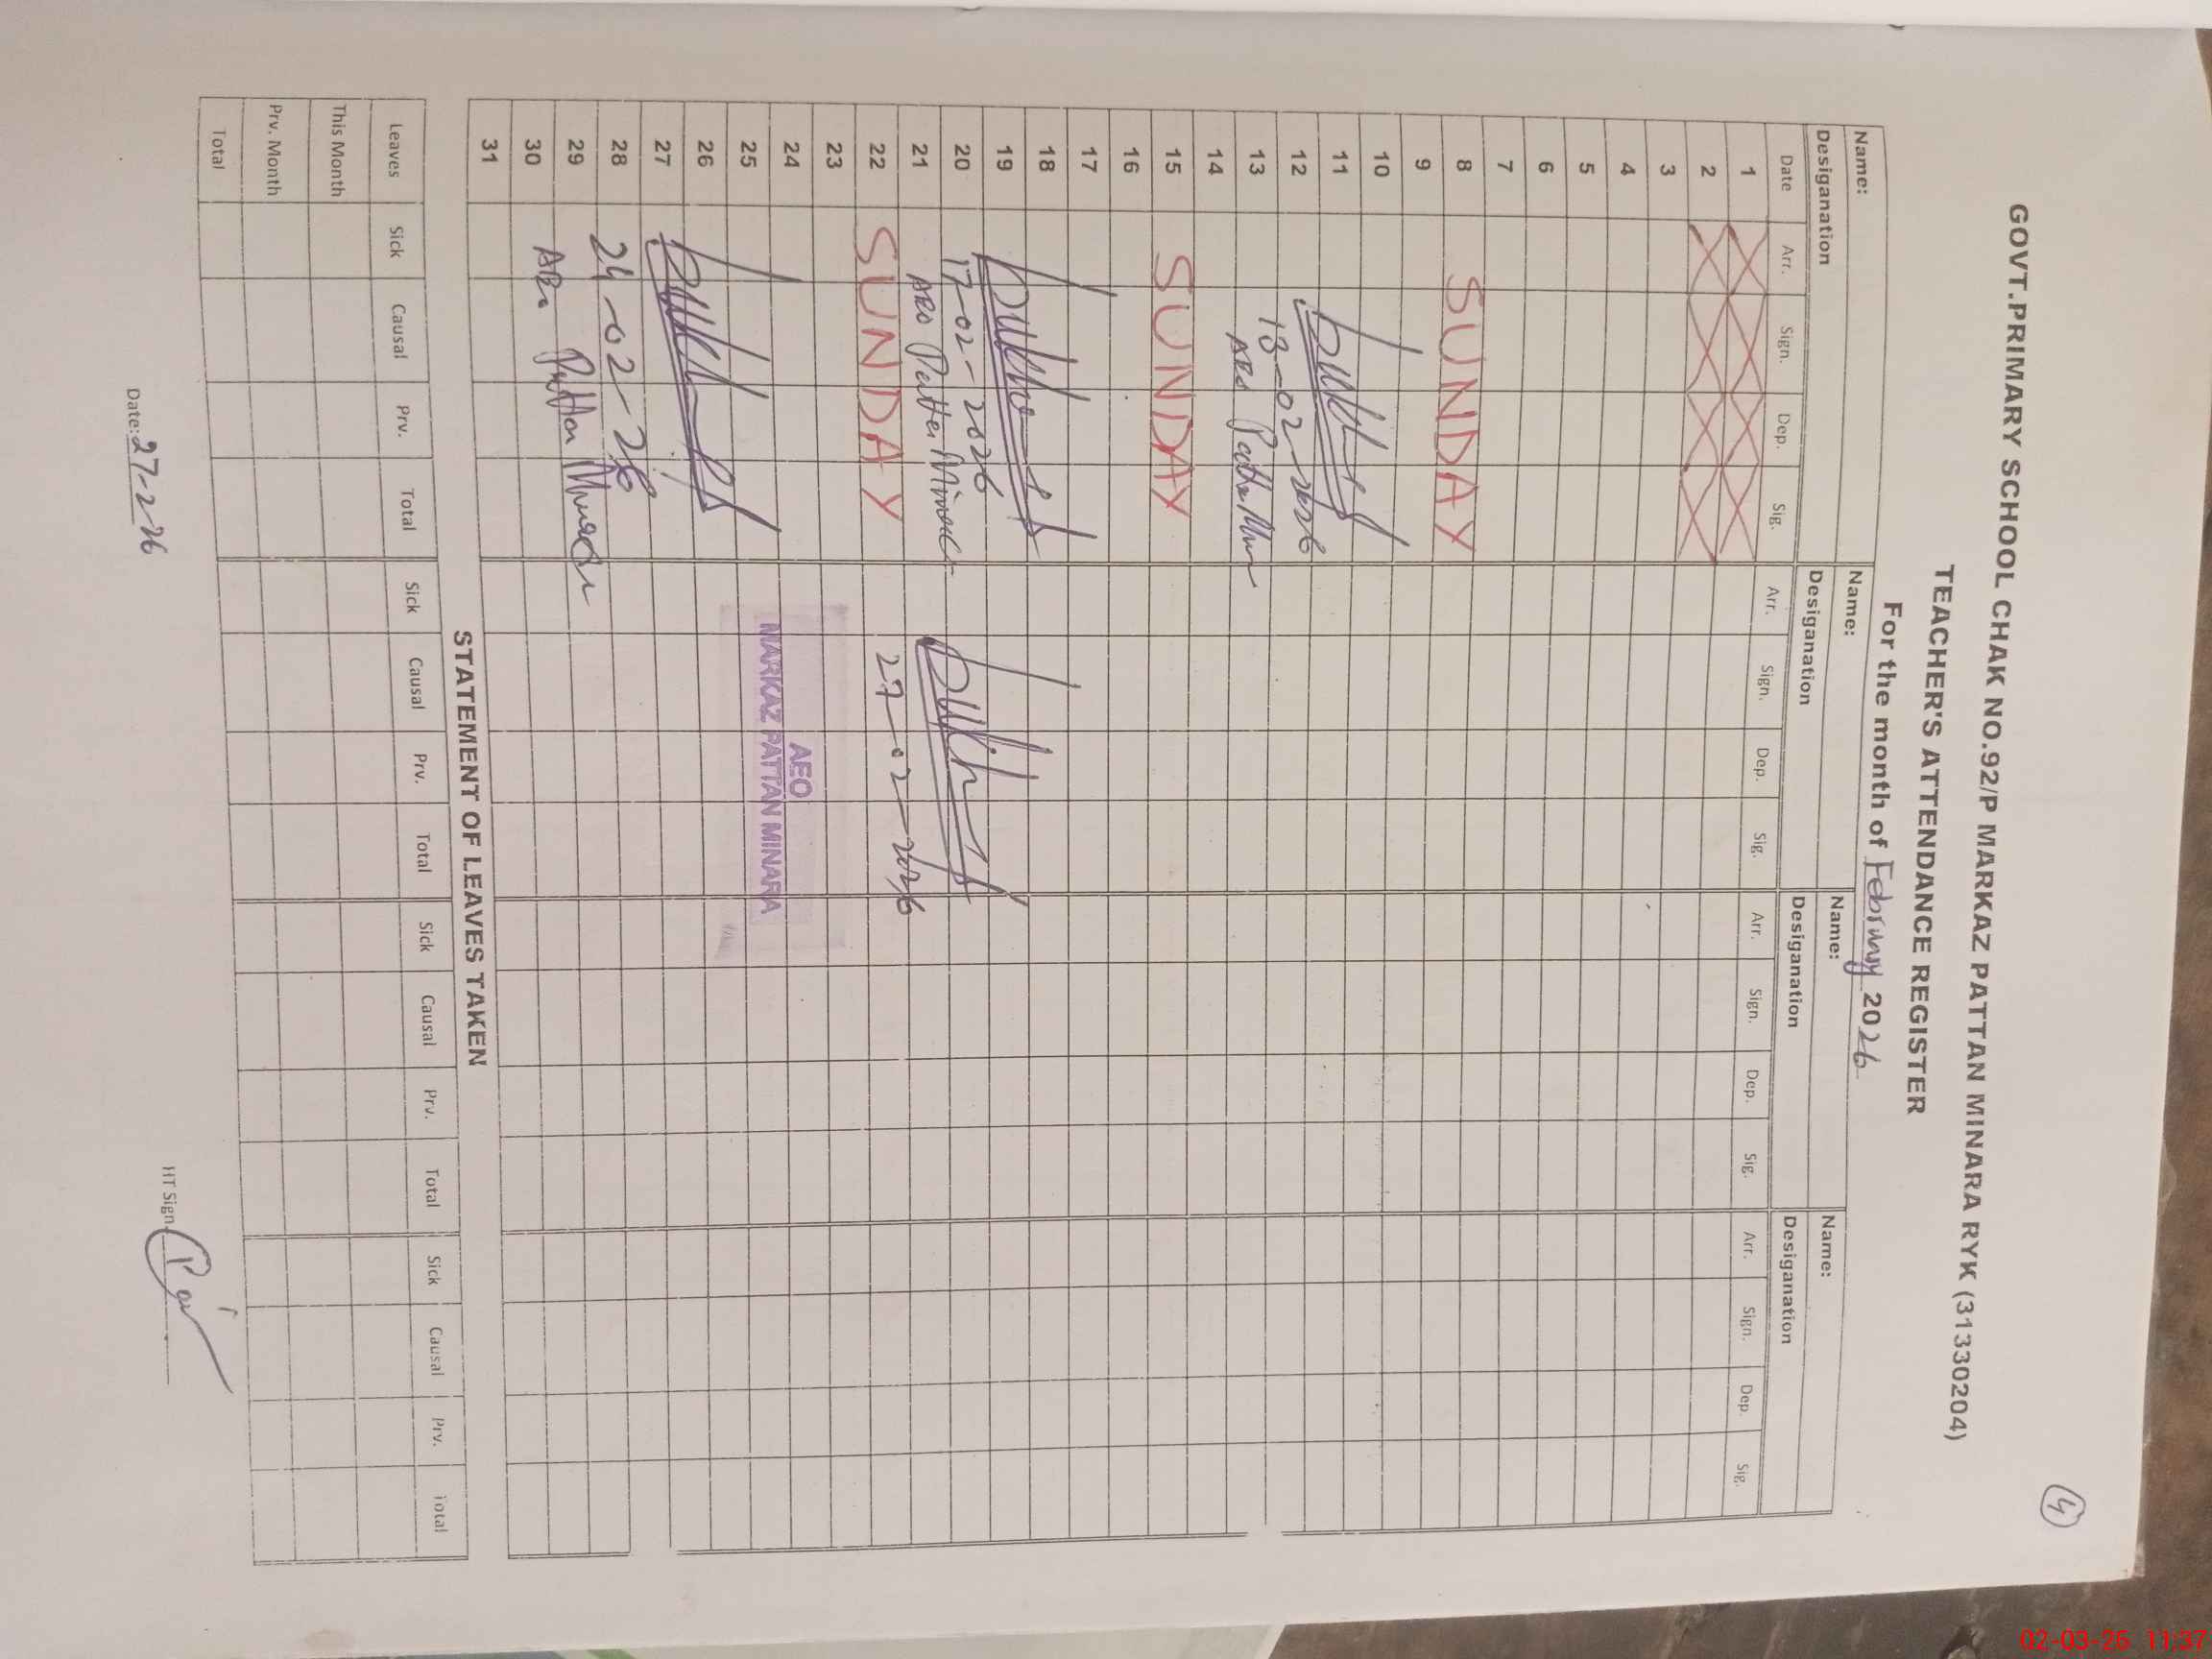 4
GOVT.PRIMARY SCHOOL CHAK NO.92/P MARKAZ PATTAN MINARA RYK (31330204)
TEACHER'S ATTENDANCE REGISTER
For the month of February 2026
Name: Name: Name: Name:
Desiganation Desiganation Desiganation Desiganation
Date Arr. Sign. Dep. Sig. Arr. Sign. Dep. Sig. Arr. Sign. Dep. Sig. Arr. Sign. Dep. Sig.
1
2
3
4
5
6
7
8 SUNDAY
9
10
11
12 13-02-2026
13
14
15 SUNDAY
16
17
18
19
20 17-02-2026
21
22 SUNDAY 27-02-2026
23
24 AEO
25 MARKAZ PATTAN MINARA
26
27
28 24-02-26
29
30
31
STATEMENT OF LEAVES TAKEN
Leaves Sick Causal Prv. Total Sick Causal Prv. Total Sick Causal Prv. Total Sick Causal Prv. Total
This Month
Prv. Month
Total
Date: 27-2-26 HT Sign.
02-03-26 11:37